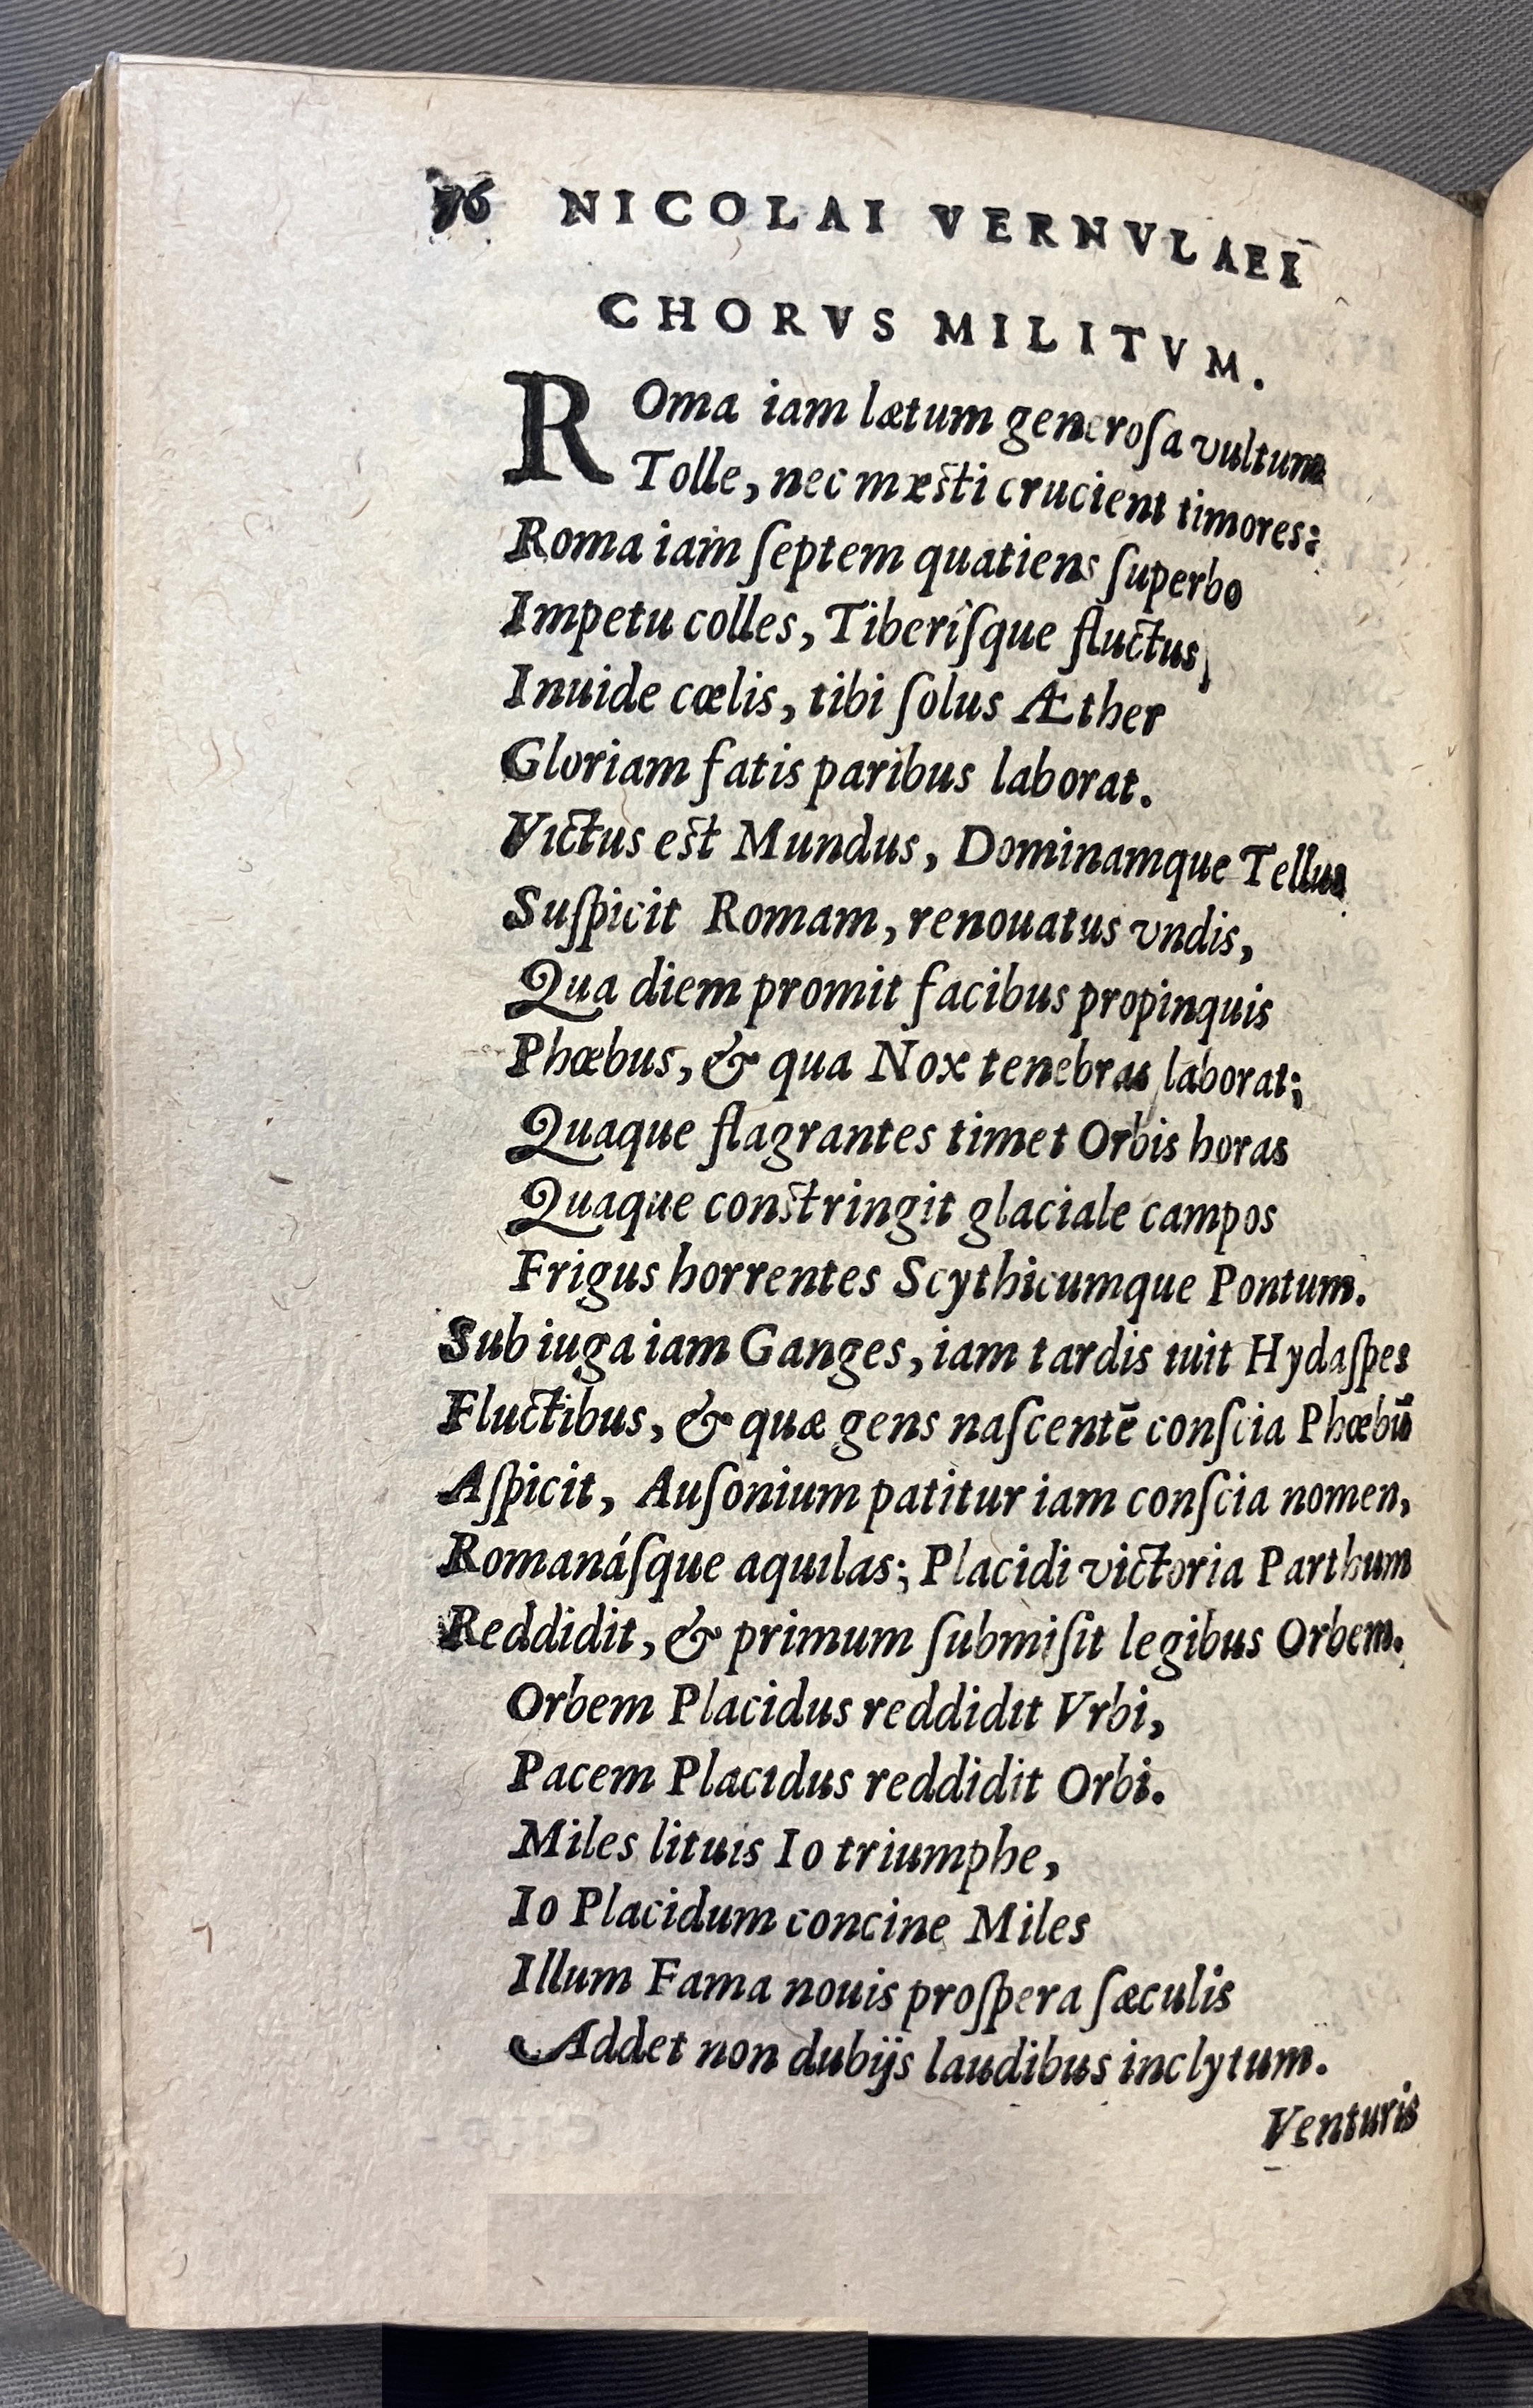 76 NICOLAI VERNVLAEI
CHORVS MILITVM.
ROma iam lætum generoſa vultum
Tolle, nec mæſti crucient timores:
Roma iam ſeptem quatiens ſuperbo
Impetu colles, Tiberiſque fluctus,
Inuide cœlis, tibi ſolus Æther
Gloriam fatis paribus laborat.
Victus eſt Mundus, Dominamque Tellus
Suſpicit Romam, renouatus vndis,
Qua diem promit facibus propinquis
Phœbus, & qua Nox tenebras laborat;
Quaque flagrantes timet Orbis horas
Quaque conſtringit glaciale campos
Frigus horrentes Scythicumque Pontum.
Sub iuga iam Ganges, iam tardis iuit Hydaſpes
Fluctibus, & quæ gens naſcentē conſcia Phœbū
Aſpicit, Auſonium patitur iam conſcia nomen,
Romanáſque aquilas; Placidi victoria Parthum
Reddidit, & primum ſubmiſit legibus Orbem.
Orbem Placidus reddidit Vrbi,
Pacem Placidus reddidit Orbi.
Miles lituis Io triumphe,
Io Placidum concine Miles
Illum Fama nouis proſpera ſæculis
Addet non dubijs laudibus inclytum.
Venturis